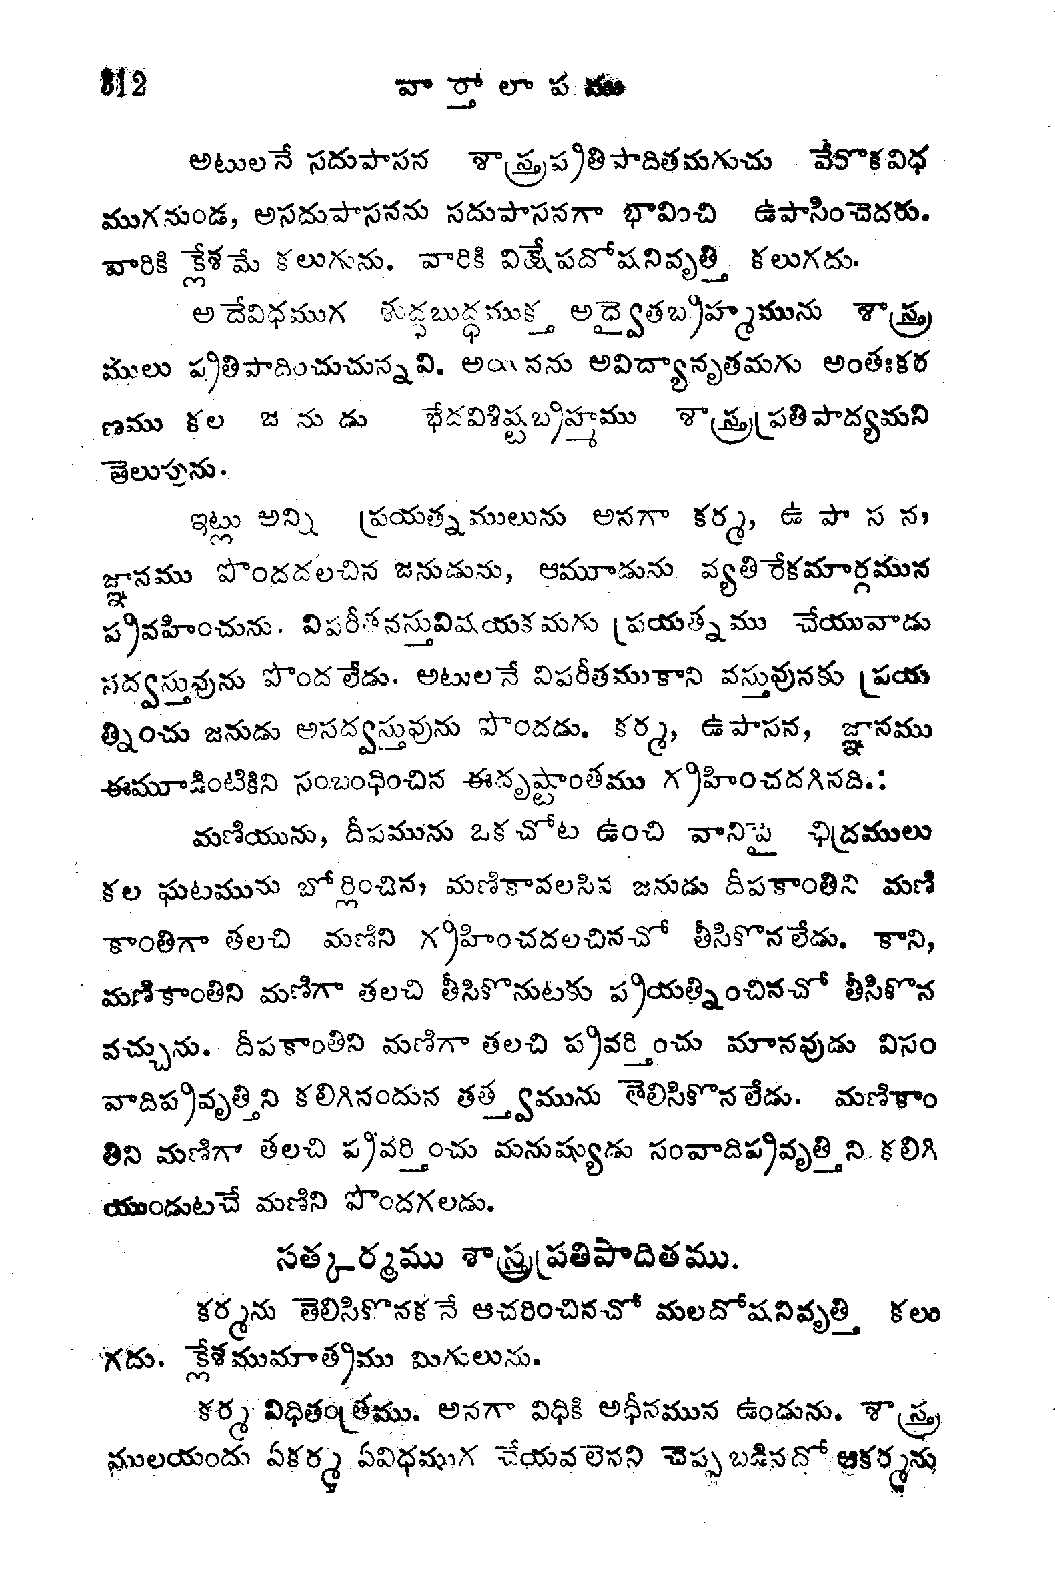 312 వార్తాలాపము
అటులనే సదుపాసన శాస్త్రప్రతిపాదితమగుచు వేఱొకవిధ
ముగనుండ, అసదుపాసనను సదుపాసనగా భావించి ఉపాసించెదరు.
వారికి క్లేశమే కలుగును. వారికి విక్షేపదోషనివృత్తి కలుగదు.
అదేవిధముగ శుద్ధబుద్ధముక్త అద్వైతబ్రహ్మమును శాస్త్ర
ములు ప్రతిపాదించుచున్నవి. అయినను అవిద్యానృతమగు అంతఃకర
ణము కల జనుడు భేదవిశిష్టబ్రహ్మము శాస్త్రప్రతిపాద్యమని
తెలుపును.
ఇట్లు అన్ని ప్రయత్నములును అనగా కర్మ, ఉపాసన,
జ్ఞానము పొందదలచిన జనుడును, ఆమూడును వ్యతిరేకమార్గమున
ప్రవహించును. విపరీతవస్తువిషయకమగు ప్రయత్నము చేయువాడు
సద్వస్తువును పొందలేడు. అటులనే విపరీతముకాని వస్తువునకు ప్రయ
త్నించు జనుడు అసద్వస్తువును పొందడు. కర్మ, ఉపాసన, జ్ఞానము
ఈమూడింటికిని సంబంధించిన ఈదృష్టాంతము గ్రహించదగినది.:
మణియును, దీపమును ఒకచోట ఉంచి వానిపై ఛిద్రములు
కల ఘటమును బోర్లించిన, మణికావలసిన జనుడు దీపకాంతిని మణి
కాంతిగా తలచి మణిని గ్రహించదలచినచో తీసికొనలేడు. కాని,
మణికాంతిని మణిగా తలచి తీసికొనుటకు ప్రయత్నించినచో తీసికొన
వచ్చును. దీపకాంతిని మణిగా తలచి ప్రవర్తించు మానవుడు విసం
వాదిప్రవృత్తిని కలిగినందున తత్త్వమును తెలిసికొనలేడు. మణికాం
తిని మణిగా తలచి ప్రవర్తించు మనుష్యుడు సంవాదిప్రవృత్తిని కలిగి
యుండుటచే మణిని పొందగలడు.
సత్కర్మము శాస్త్రప్రతిపాదితము.
కర్మను తెలిసికొనకనే ఆచరించినచో మలదోషనివృత్తి కలు
గదు. క్లేశముమాత్రము మిగులును.
కర్మ విధితంత్రము. అనగా విధికి అధీనమున ఉండును. శాస్త్ర
ములయందు ఏకర్మ ఏవిధముగ చేయవలెనని చెప్పబడినదో ఆకర్మను